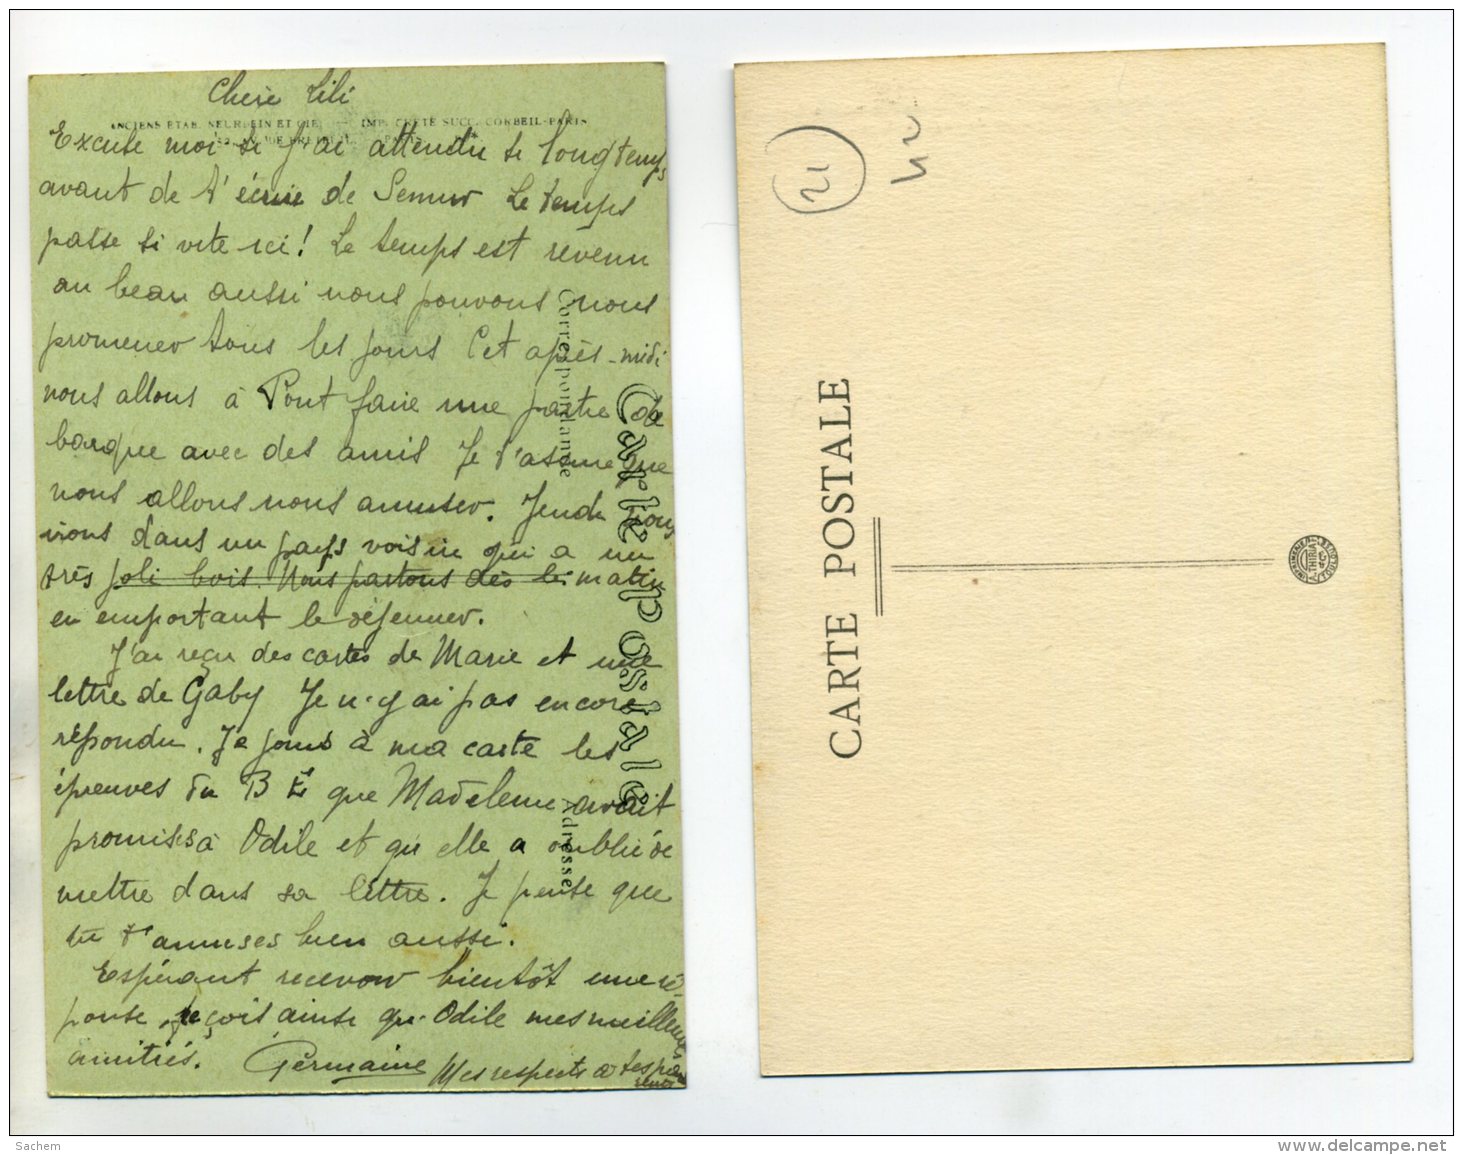 Chere Lili
ANCIENS ETAB. NEURDEIN ET CIE — IMP. CRETE SUCC. CORBEIL-PARIS
Excuse moi si j'ai attendu si longtemps
avant de t'écrire de Semur Le temps
passe si vite ici! Le temps est revenu
au beau aussi nous pouvons nous
promener tous les jours Cet après-midi
nous allons à Pont faire une partie de
barque avec des amis Je t'assure que
nous allons nous amuser. Jeudi nous
irons dans un pays voisin qui a un
très joli bois. Nous partons dès le matin
en emportant le déjeuner.
J'ai reçu des cartes de Marie et une
lettre de Gaby Je n'y ai pas encore
répondu. Je joins à ma carte les
épreuves du B E que Madeleine avait
promises à Odile et qu'elle a oublié de
mettre dans sa lettre. Je pense que
tu t'amuses bien aussi.
Espérant recevoir bientôt une ré-
ponse, reçois ainsi que Odile mes meilleures
amitiés. Germaine Mes respects à tes parents
Carte Postale
Correspondance
Adresse
21
42
CARTE POSTALE
IMPRIMERIE A. THIRIAT & Cie TOULOUSE
Sachem
www.delcampe.net